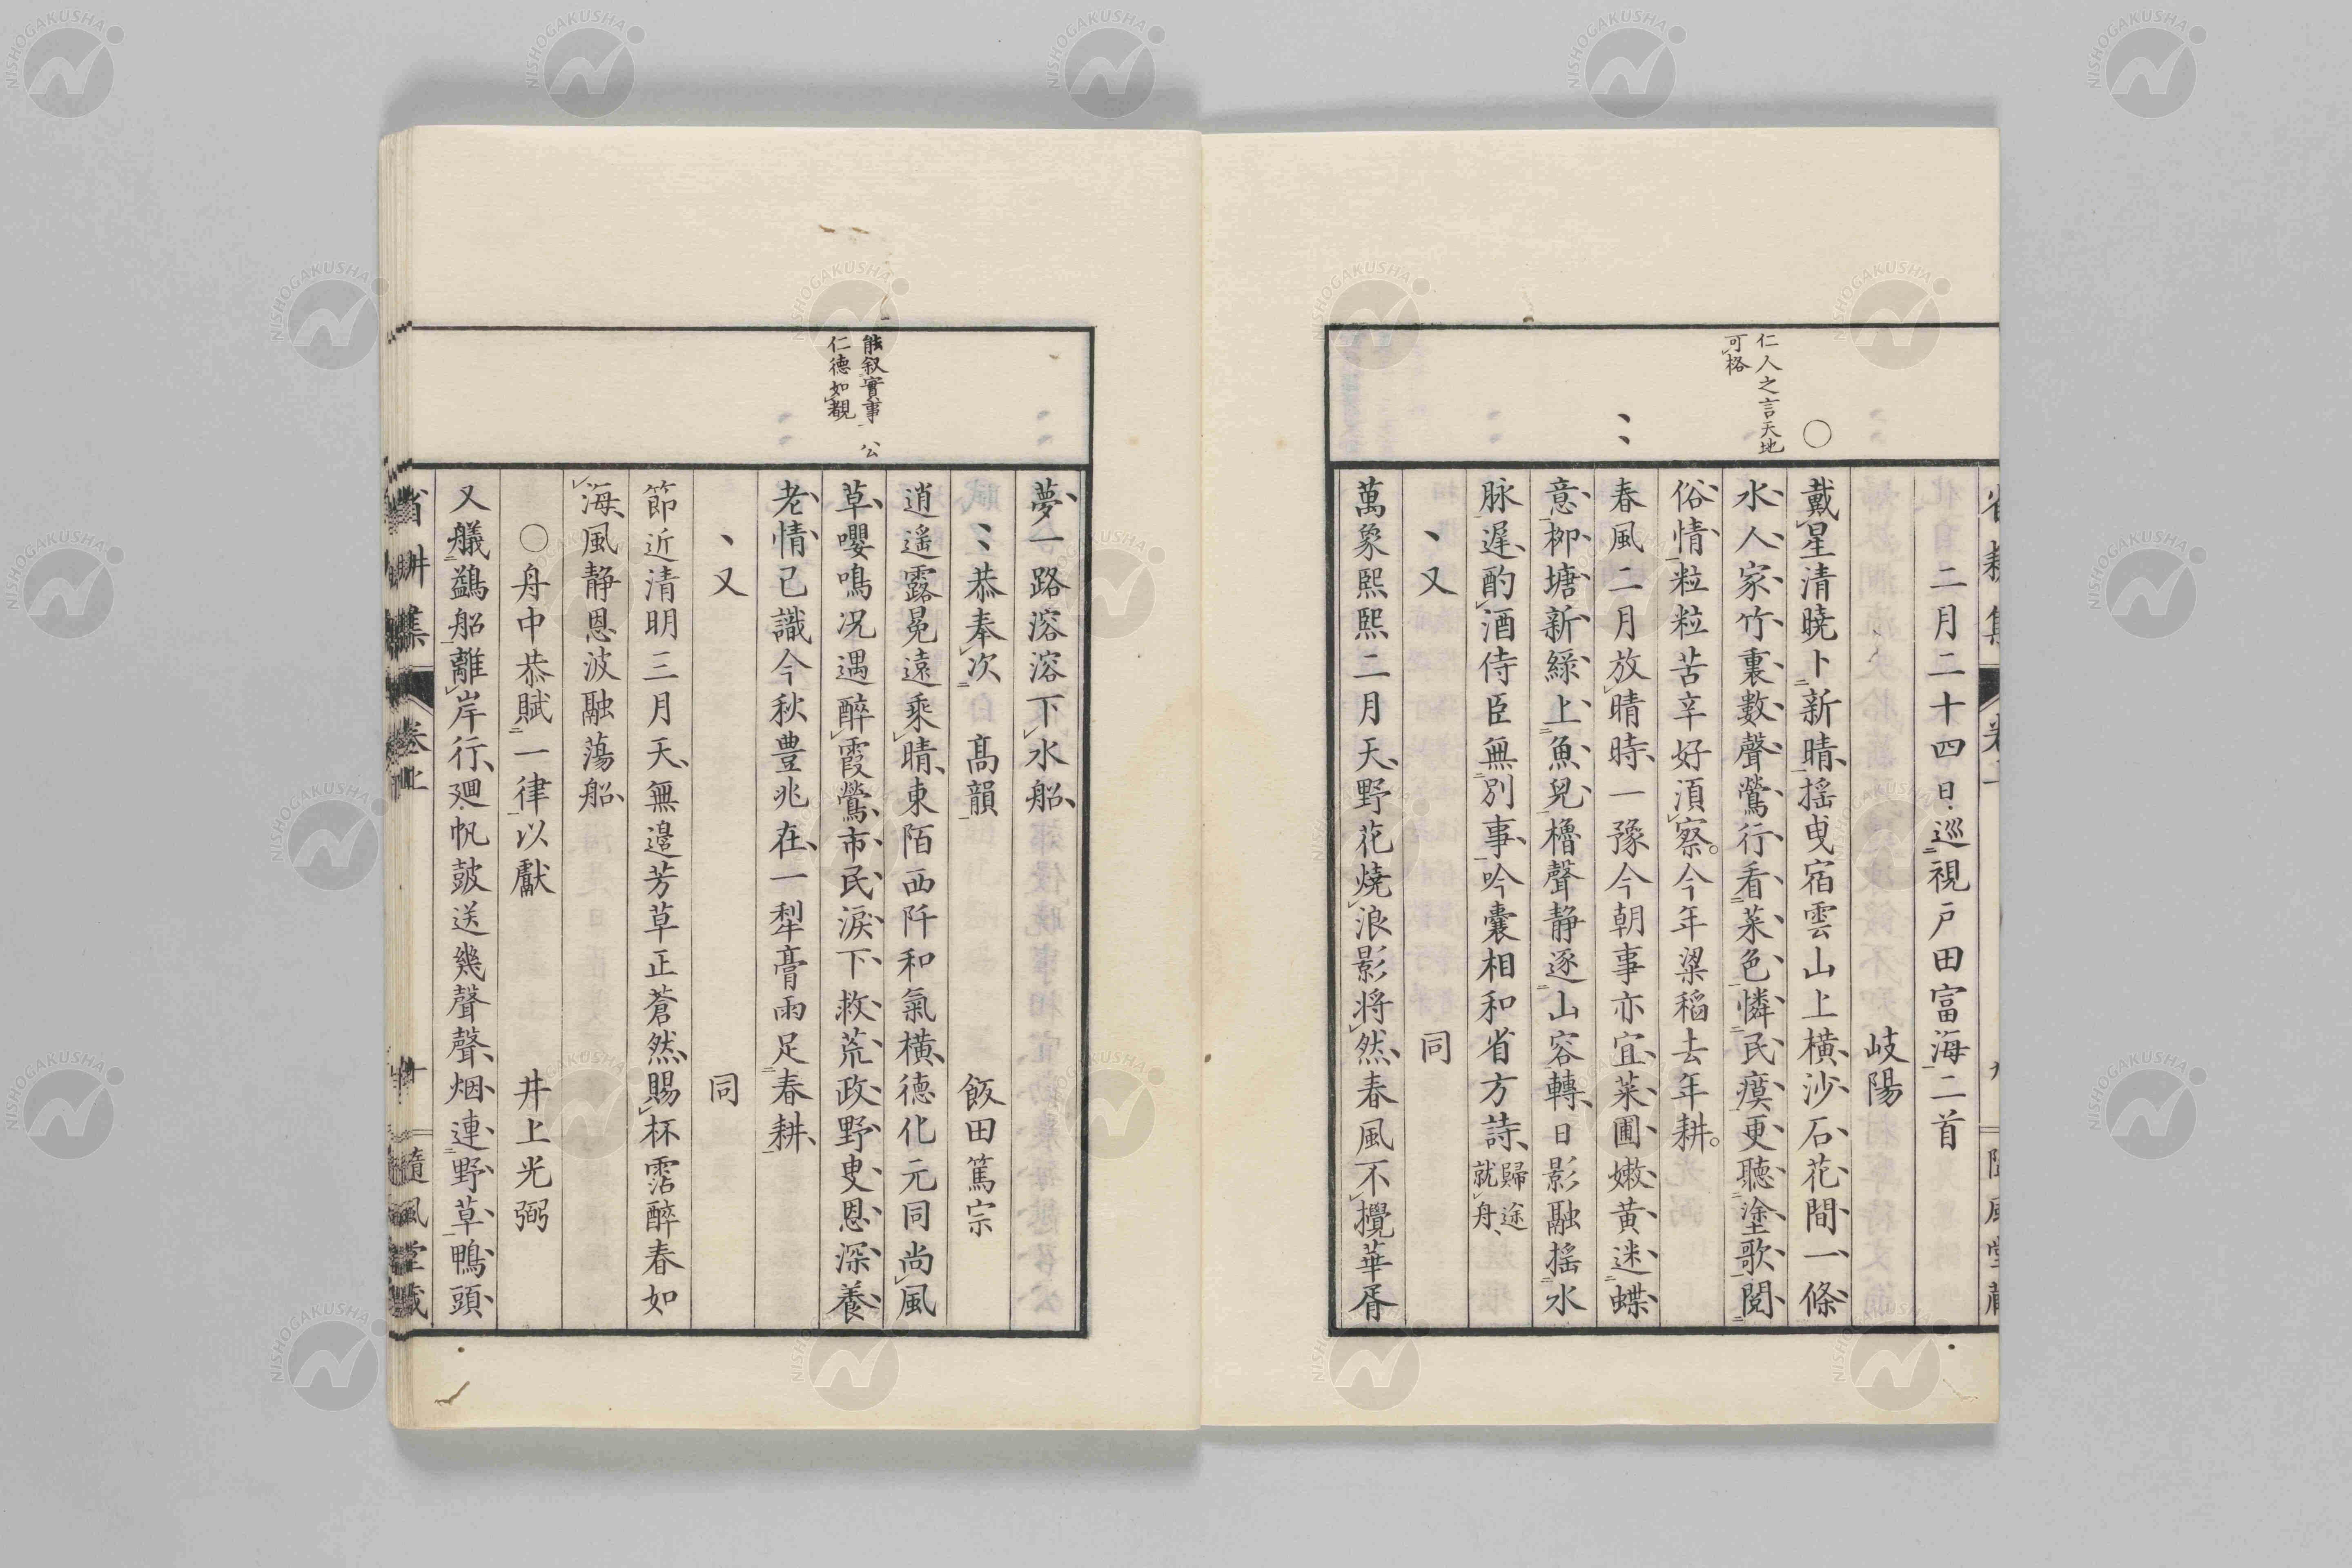 省耕集 卷上 九 隨風堂藏
二月二十四日巡視戸田富海二首
岐陽
仁人之言天地
可格
○戴星清曉卜新晴揺曳宿雲山上橫沙石花間一條
水人家竹裏數聲鶯行看菜色憐民瘼更聽塗歌閱
俗情粒粒苦辛好湏察今年粱稻去年耕
春風二月放晴時一豫今朝事亦宜菜圃嫩黃迷蝶
意栁塘新綠上魚兒櫓聲静逐山容轉日影融揺水
脉遲酌酒侍臣無別事吟囊相和省方詩歸途就舟
又 同
萬象熙熙二月天野花燒浪影將然春風不攪華胥
夢一路溶溶下水船
恭奉次 高韻 飯田篤宗
能叙實事 公
仁德如覩
逍遥露冕遠乘晴東陌西阡和氣橫德化元同尚風
草嚶鳴况遇醉霞鶯市民淚下救荒政野叟恩深養
老情已識今秋豊兆在一犁膏雨足春耕
又 同
節近清明三月天無邉芳草正蒼然賜杯霑醉春如
海風静恩波融蕩船
○舟中恭賦一律以獻 井上光弼
又艤鷁船離岸行廻帆鼓送幾聲聲烟連野草鴨頭
省耕集 卷上 十 隨風堂藏
NISHOGAKUSHA